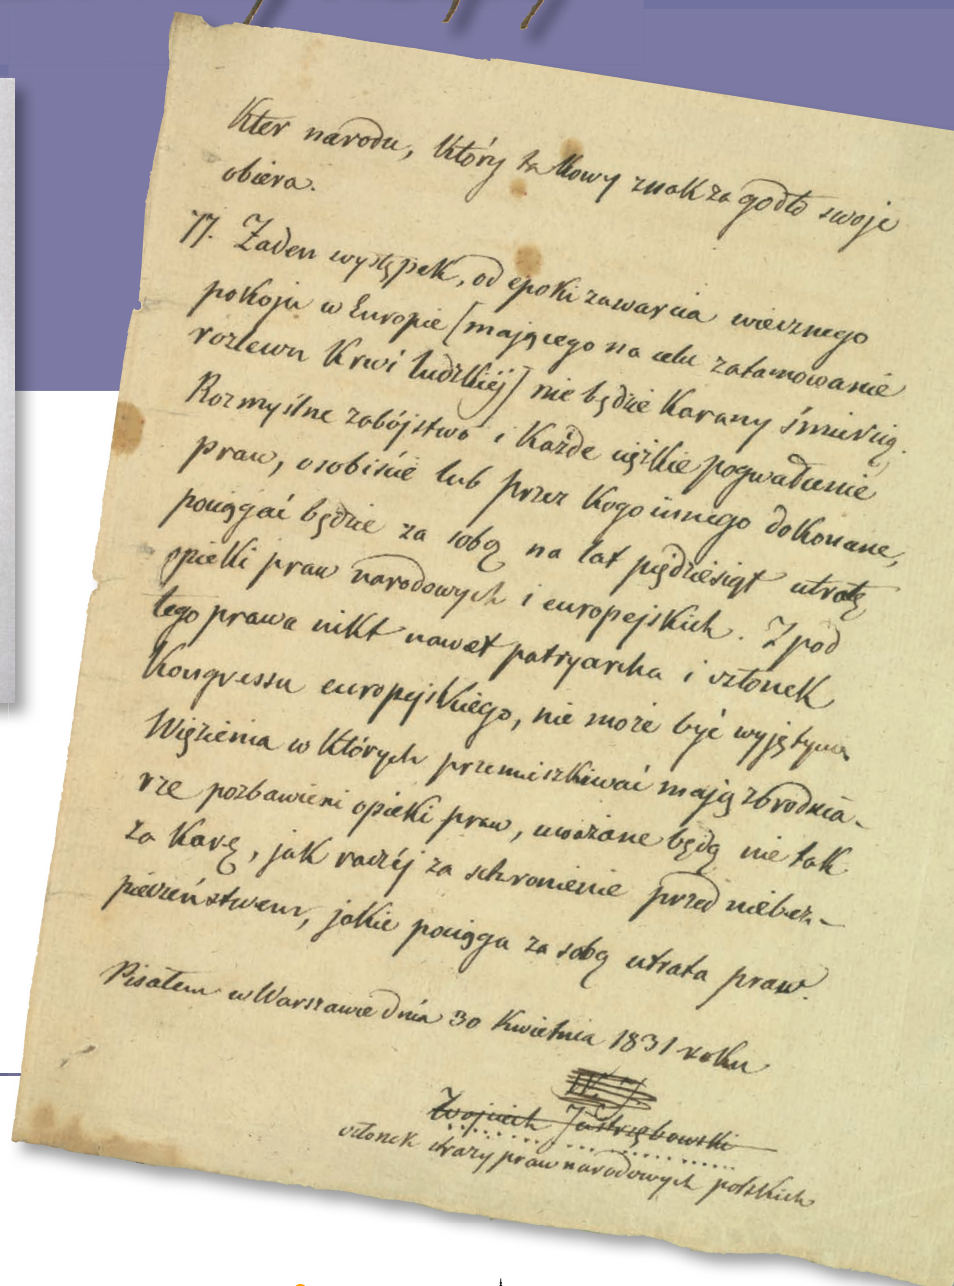 kter narodu, który takowy znak za godło swoje
obiera.
77. Żaden występek, od epoki zawarcia wiecznego
pokoju w Europie [mającego na celu zatamowanie
rozlewu krwi ludzkiéj] nie będzie karany śmiercią.
Rozmyślne zabójstwo i każde ciężkie pogwałcenie
praw, osobiście lub przez kogo innego dokonane,
pociągać będzie za sobą na lat pięćdziesiąt utratę
opieki praw narodowych i europejskich. Z pod
tego prawa nikt nawet patryarcha i członek
Kongressu europejskiego, nie może być wyjętym.
Więzienia w których przemieszkiwać mają zbrodnia-
rze pozbawieni opieki praw, uważane będą nie tak
za karę, jak raczéj za schronienie przed niebez-
pieczeństwem, jakie pociąga za sobą utrata praw.
Pisałem w Warszawie dnia 30 kwietnia 1831 roku
Wojciech Jastrzębowski
członek straży praw narodowych polskich